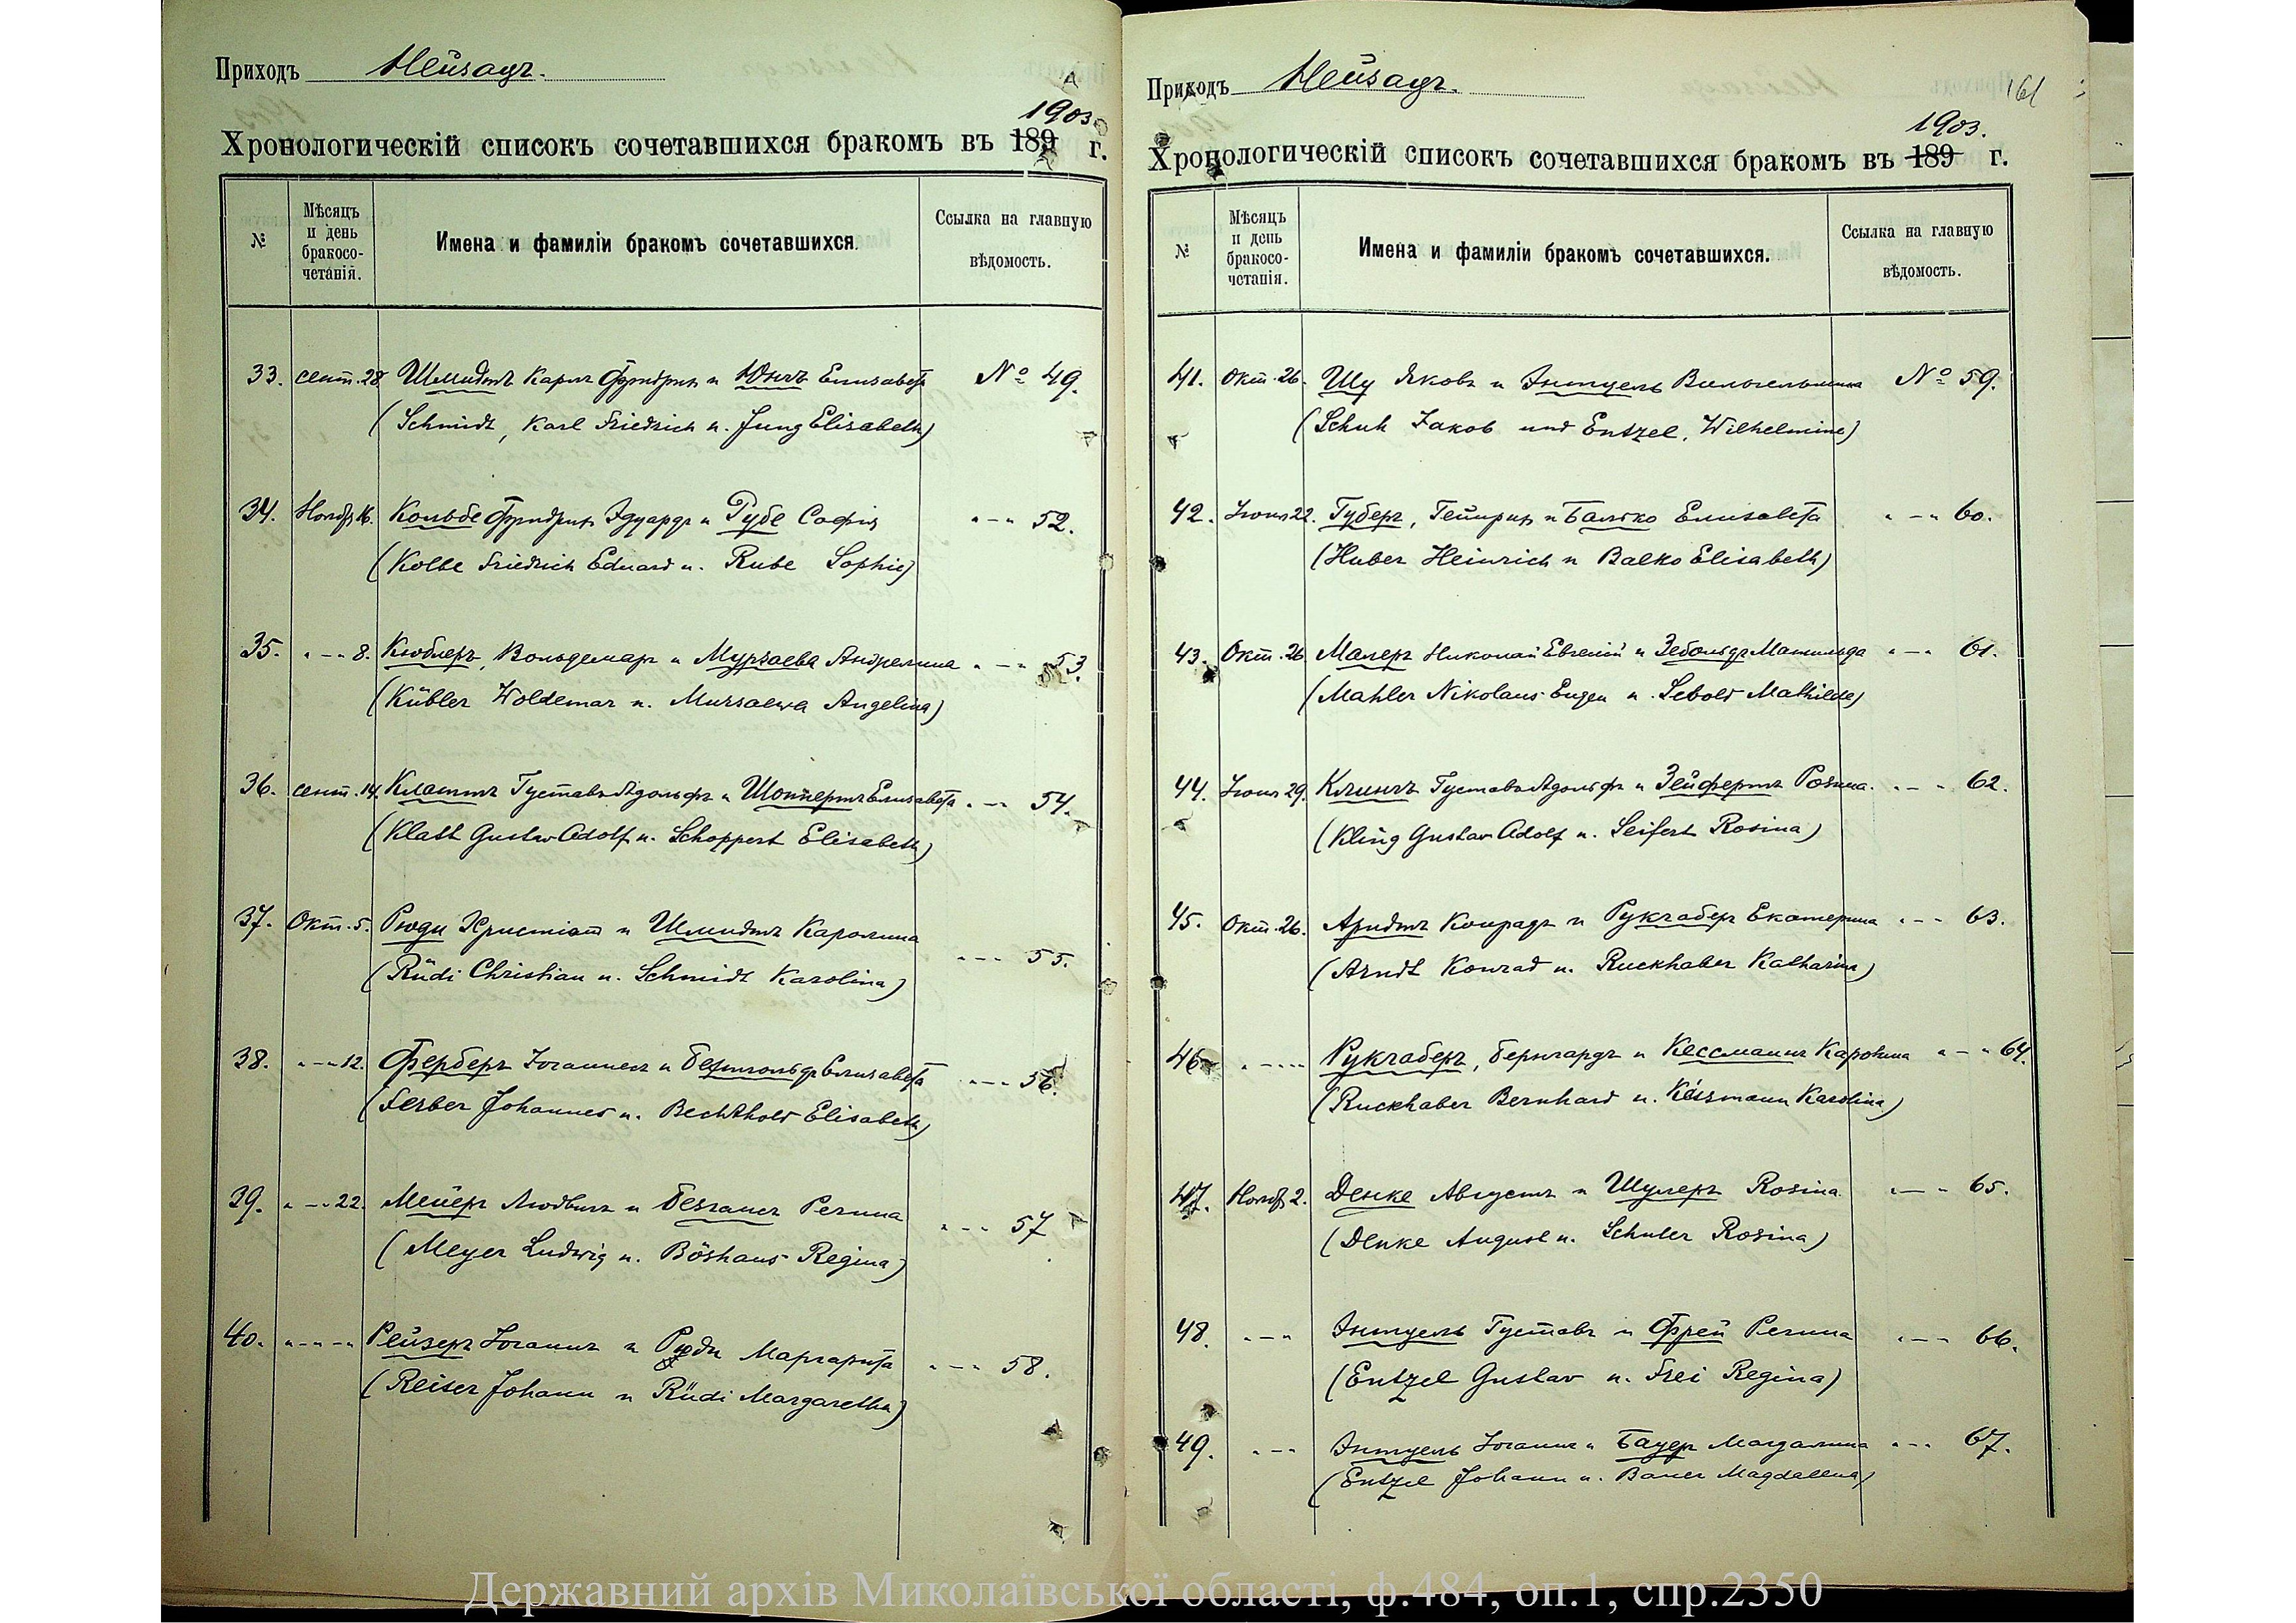 Приходъ Нейзацъ.
1903.
Хронологическій списокъ сочетавшихся бракомъ въ 189 г.
№
Мѣсяцъ
и день
бракосо-
четанія.
Имена и фамиліи бракомъ сочетавшихся.
Ссылка на главную
вѣдомость.
33. сент. 28. Шмидтъ Карлъ Фридрих и Юнгъ Елизавета № 49.
(Schmidt, Karl Friedrich u. Jung Elisabeth)
34. Ноябр. 16. Кольбе Фридрих Эдуардъ и Рубе София " - " 52.
(Kolbe Friedrich Eduard u. Rube Sophie)
35. " - " 8. Кюблеръ, Вольдемаръ и Мурзаева Ангелина " - " 53.
(Kübler Woldemar u. Mursaewa Angelina)
36. сент. 14. Клаттъ Густавъ Адольфъ и Шоппертъ Елизавета " - " 54.
(Klatt Gustav Adolf u. Schoppert Elisabeth)
37. Окт. 5. Рюди Христіан и Шмидтъ Каролина
" - " 55.
(Rüdi Christian u. Schmidt Karolina)
38. " - " 12. Ферберъ Іоганнесъ и Бехтгольдъ Елизавета " - " 56.
(Ferber Johannes u. Bechthold Elisabeth)
39. " - " 22. Мейеръ Людвигъ и Безгаусъ Регина " - " 57
(Meyer Ludwig u. Böshaus Regina)
40. " - " - " Рейзеръ Іоганнъ и Рюди Маргарита " - " 58.
(Reiser Johann u. Rüdi Margaretha)
Приходъ Нейзацъ.
161
1903.
Хронологическій списокъ сочетавшихся бракомъ въ 189 г.
№
Мѣсяцъ
и день
бракосо-
четанія.
Имена и фамиліи бракомъ сочетавшихся.
Ссылка на главную
вѣдомость.
41. Окт. 26. Шу Яковъ и Энтцель Вильгельмина № 59.
(Schuh Jakob und Entzel, Wilhelmine)
42. Іюня 22. Губеръ, Гейнрих и Балко Елизавета " - " 60.
(Huber Heinrich u Balko Elisabeth)
43. Окт. 26. Малеръ Николай Евгеній и Зебольдъ Матильда " - " 61.
(Mahler Nikolaus Eugen u. Sebold Mathilde)
44. Іюня 29. Клингъ Густавъ Адольфъ и Зейфертъ Розина. " - " 62.
(Kling Gustav Adolf u. Seifert Rosina)
45. Окт. 26. Арндтъ Конрадъ и Рукгаберъ Екатерина " - " 63.
(Arndt Konrad u. Ruckhaber Katharina)
46. " - " Рукгаберъ, Бернгардъ и Кессманнъ Каролина " - " 64.
(Ruckhaber Bernhard u. Kässmann Karolina)
47. Ноябр. 2. Денке Августъ и Шулеръ Rosina " - " 65.
(Denke August u. Schuler Rosina)
48. " - " Энтцель Густавъ и Фрей Регина " - " 66.
(Entzel Gustav u. Frei Regina)
49. " - " Энтцель Іоганнъ и Бауеръ Магдалина " - " 67.
(Entzel Johann u. Bauer Magdalena)
Державний архів Миколаївської області, ф.484, оп.1, спр.2350